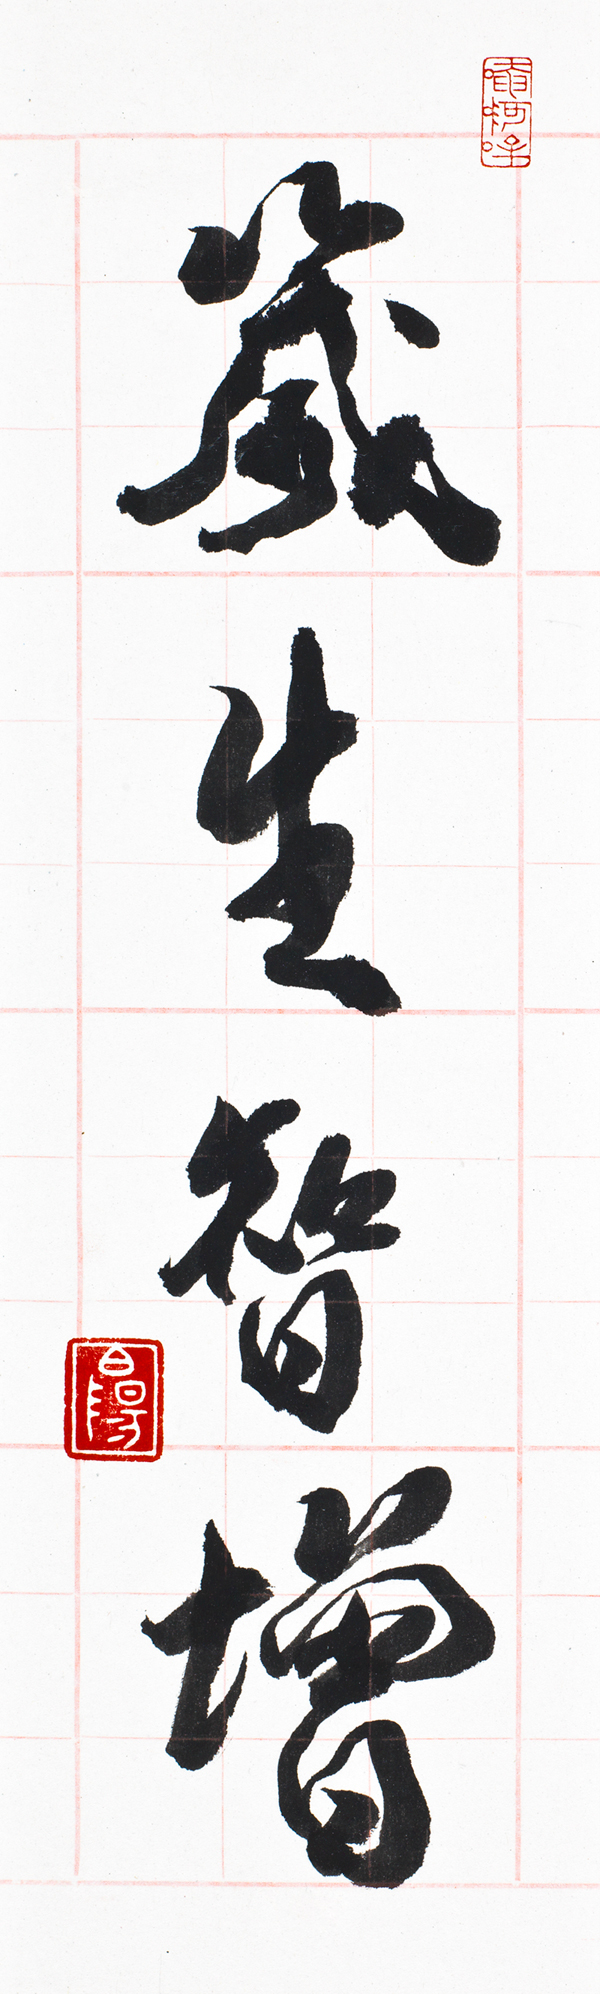 歲生智增